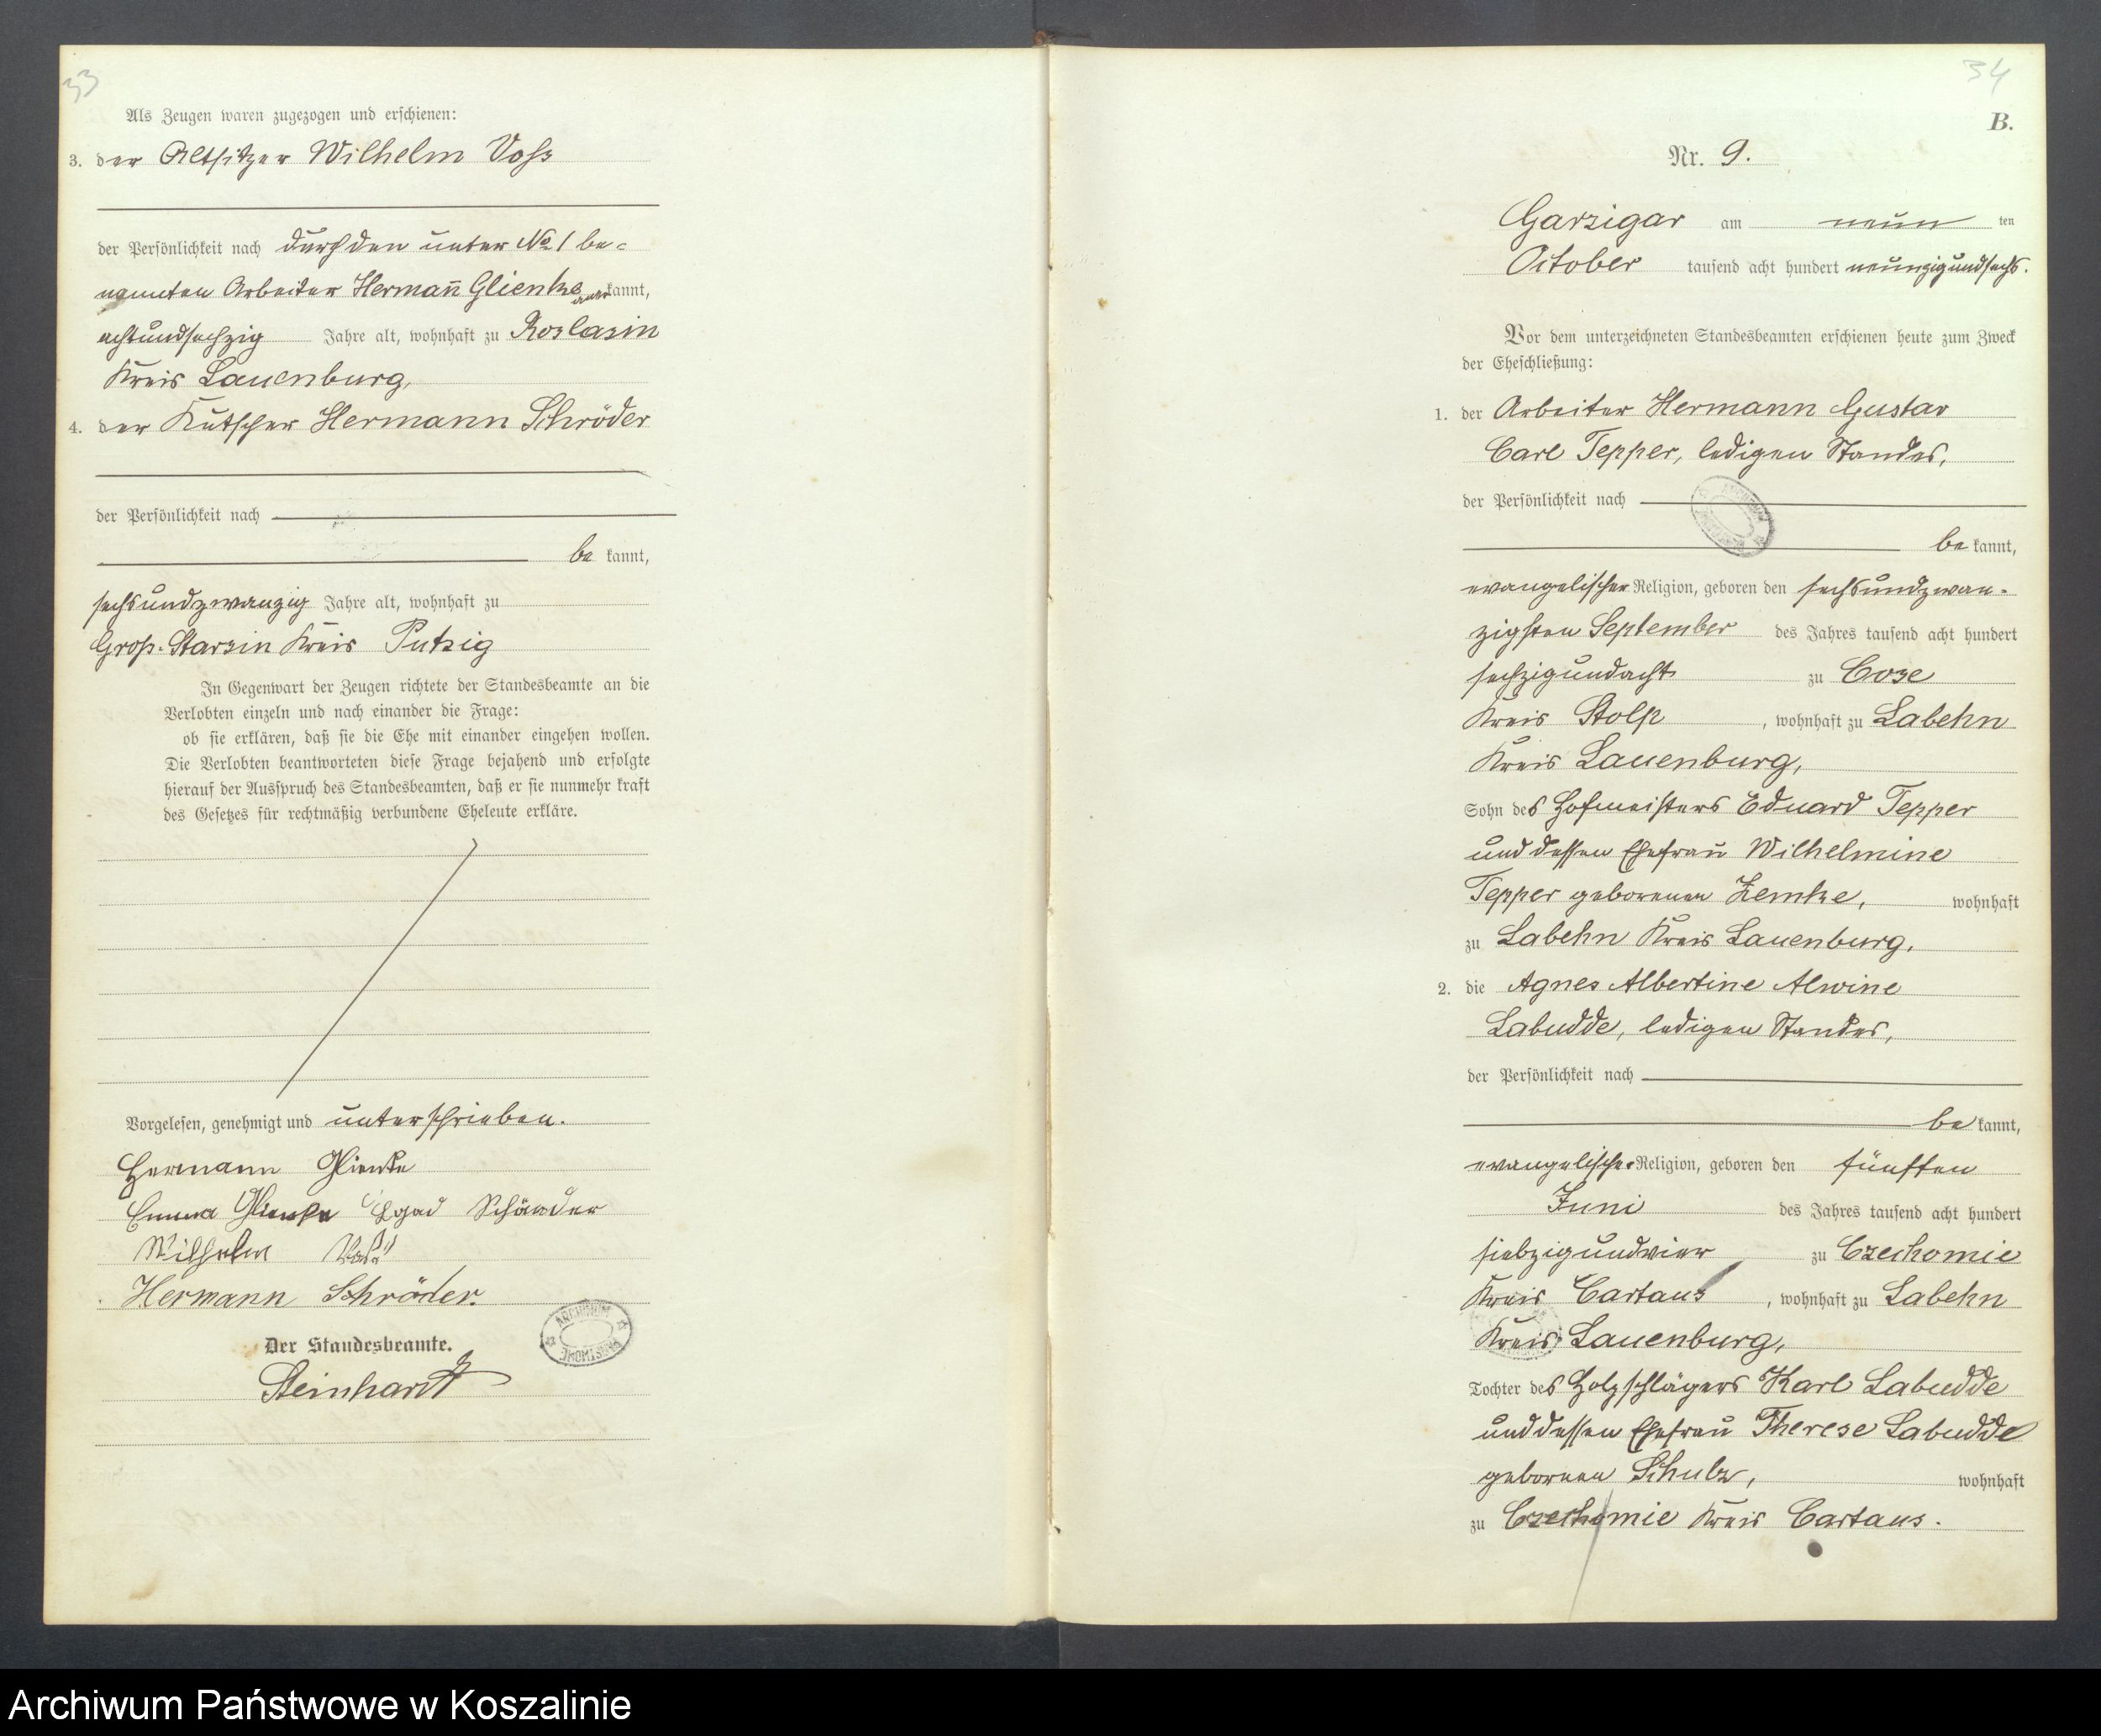 33
Als Zeugen waren zugezogen und erschienen:
3. der Altsitzer Wilhelm Voss
der Persönlichkeit nach durch den unter No 1 be-
nannten Arbeiter Hermann̄ Glienke anerkannt,
achtundsechzig Jahre alt, wohnhaft zu Roslasin
Kreis Lauenburg,
4. der Kutscher Hermann Schröder
der Persönlichkeit nach
be kannt,
sechsundzwanzig Jahre alt, wohnhaft zu
Groß-Starsin Kreis Putzig
In Gegenwart der Zeugen richtete der Standesbeamte an die
Verlobten einzeln und nach einander die Frage:
ob sie erklären, daß sie die Ehe mit einander eingehen wollen.
Die Verlobten beantworteten diese Frage bejahend und erfolgte
hierauf der Ausspruch des Standesbeamten, daß er sie nunmehr kraft
des Gesetzes für rechtmäßig verbundene Eheleute erkläre.
Vorgelesen, genehmigt und unterschrieben.
Hermann Glienke
Emma Glienke
Wilhelm Voß
Hermann Schröder.
ARCHIWUM
Der Standesbeamte.
Steinhardt
34
B.
Nr. 9.
Garzigar am neun ten
October tausend acht hundert neunzigundsechs.
Vor dem unterzeichneten Standesbeamten erschienen heute zum Zweck
der Eheschließung:
1. der Arbeiter Hermann Gustav
Carl Tepper, ledigen Standes,
der Persönlichkeit nach
be kannt,
evangelischer Religion, geboren den sechsundzwan-
zigsten September des Jahres tausend acht hundert
sechzigundacht zu Coze
Kreis Stolp, wohnhaft zu Labehn
Kreis Lauenburg,
Sohn des Hofmeisters Eduard Tepper
und dessen Ehefrau Wilhelmine
Tepper geborenen Zemke, wohnhaft
zu Labehn Kreis Lauenburg,
2. die Agnes Albertine Alwine
Labudde, ledigen Standes,
der Persönlichkeit nach
be kannt,
evangelischer Religion, geboren den fünften
Juni des Jahres tausend acht hundert
siebzigundvier zu Czechomie
Kreis Cartaus, wohnhaft zu Labehn
Kreis Lauenburg,
Tochter des Holzschlägers Karl Labudde
und dessen Ehefrau Therese Labudde
gebornen Schulz, wohnhaft
zu Czechomie Kreis Cartaus.
Archiwum Państwowe w Koszalinie